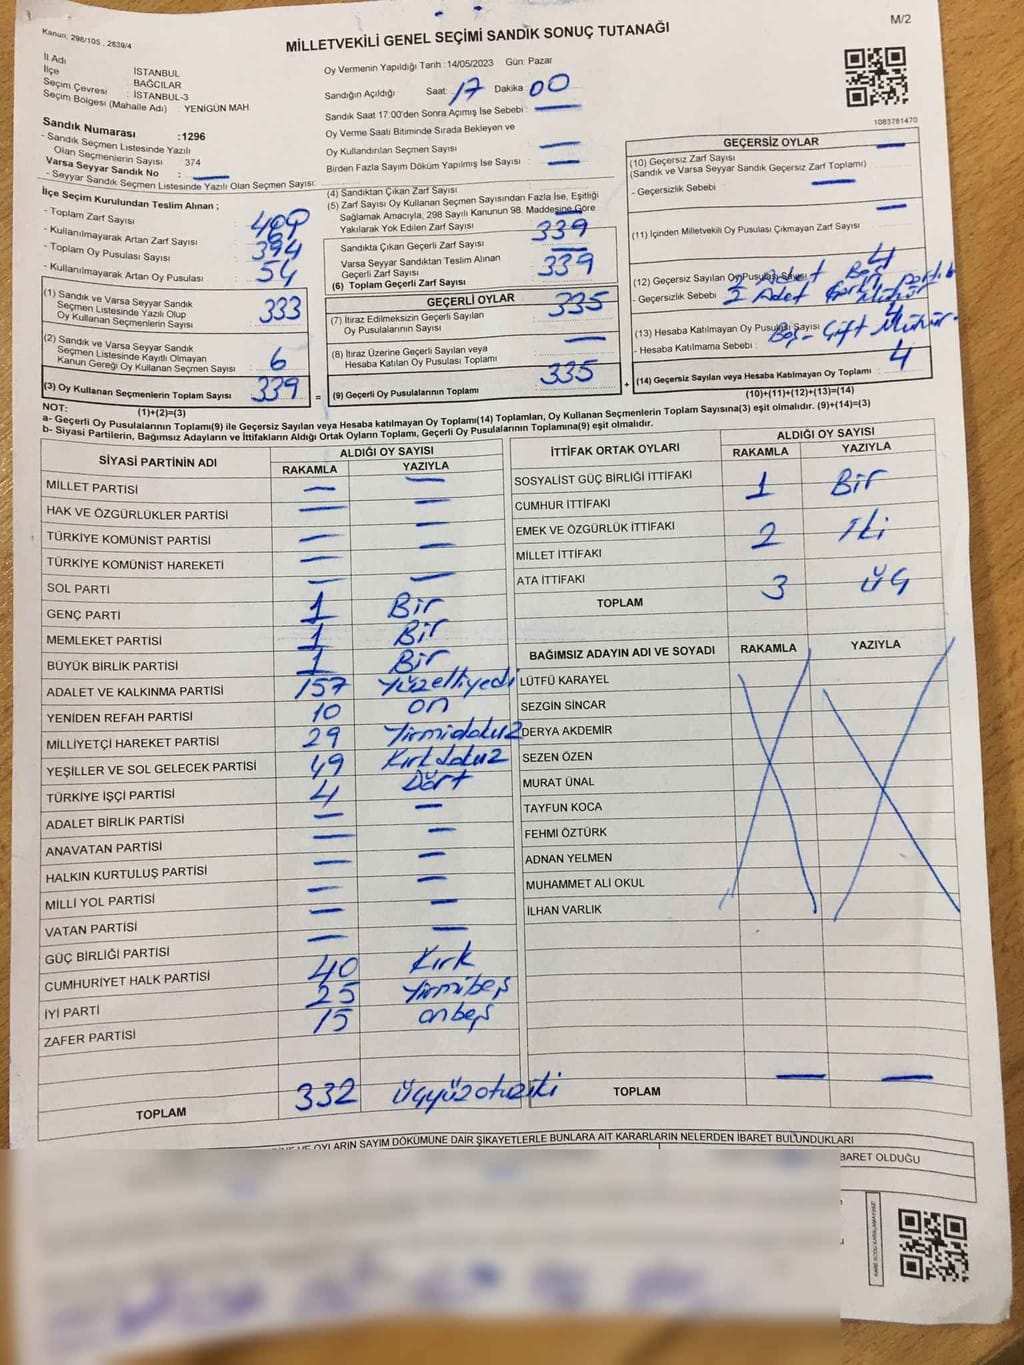 Kanun: 298/105 , 2839/4
M/2
MİLLETVEKİLİ GENEL SEÇİMİ SANDIK SONUÇ TUTANAĞI
İl Adı : İSTANBUL
İlçe : BAĞCILAR
Seçim Çevresi : İSTANBUL-3
Seçim Bölgesi (Mahalle Adı) : YENİGÜN MAH
Sandık Numarası :1296
- Sandık Seçmen Listesinde Yazılı
Olan Seçmenlerin Sayısı : 374
Varsa Seyyar Sandık No : —
- Seyyar Sandık Seçmen Listesinde Yazılı Olan Seçmen Sayısı:
Oy Vermenin Yapıldığı Tarih : 14/05/2023 Gün: Pazar
Sandığın Açıldığı Saat: 17 Dakika: 00
Sandık Saat 17:00'den Sonra Açımış İse Sebebi : —
Oy Verme Saati Bitiminde Sırada Bekleyen ve
Oy Kullandırılan Seçmen Sayısı : —
Birden Fazla Sayım Döküm Yapılmış İse Sayısı : —
1083781470
İlçe Seçim Kurulundan Teslim Alınan ;
- Toplam Zarf Sayısı
- Kullanılmayarak Artan Zarf Sayısı
- Toplam Oy Pusulası Sayısı 394
- Kullanılmayarak Artan Oy Pusulası 54
(1) Sandık ve Varsa Seyyar Sandık
Seçmen Listesinde Yazılı Olup
Oy Kullanan Seçmenlerin Sayısı 333
(2) Sandık ve Varsa Seyyar Sandık
Seçmen Listesinde Kayıtlı Olmayan
Kanun Gereği Oy Kullanan Seçmen Sayısı 6
(3) Oy Kullanan Seçmenlerin Toplam Sayısı 339
(1)+(2)=(3)
(4) Sandıktan Çıkan Zarf Sayısı
(5) Zarf Sayısı Oy Kullanan Seçmen Sayısından Fazla İse, Eşitliği
Sağlamak Amacıyla, 298 Sayılı Kanunun 98. Maddesine Göre
Yakılarak Yok Edilen Zarf Sayısı —
Sandıkta Çıkan Geçerli Zarf Sayısı 339
Varsa Seyyar Sandıktan Teslim Alınan
Geçerli Zarf Sayısı —
(6) Toplam Geçerli Zarf Sayısı 339
GEÇERLİ OYLAR
(7) İtiraz Edilmeksizin Geçerli Sayılan
Oy Pusulalarının Sayısı 335
(8) İtiraz Üzerine Geçerli Sayılan veya
Hesaba Katılan Oy Pusulası Toplamı —
= (9) Geçerli Oy Pusulalarının Toplamı 335 +
GEÇERSİZ OYLAR
(10) Geçersiz Zarf Sayısı —
(Sandık ve Varsa Seyyar Sandık Geçersiz Zarf Toplamı)
- Geçersizlik Sebebi : —
(11) İçinden Milletvekili Oy Pusulası Çıkmayan Zarf Sayısı —
(12) Geçersiz Sayılan Oy Pusulası Sayısı 4
- Geçersizlik Sebebi : 2 Adet Boş
2 Adet Mühür
(13) Hesaba Katılmayan Oy Pusulası Sayısı
- Hesaba Katılmama Sebebi : Boş - Çift Mühür.
(14) Geçersiz Sayılan veya Hesaba Katılmayan Oy Toplamı 4
(10)+(11)+(12)+(13)=(14)
NOT:
a- Geçerli Oy Pusulalarının Toplamı(9) ile Geçersiz Sayılan veya Hesaba katılmayan Oy Toplamı(14) Toplamları, Oy Kullanan Seçmenlerin Toplam Sayısına(3) eşit olmalıdır. (9)+(14)=(3)
b- Siyasi Partilerin, Bağımsız Adayların ve İttifakların Aldığı Ortak Oyların Toplamı, Geçerli Oy Pusulalarının Toplamına(9) eşit olmalıdır.
SİYASİ PARTİNİN ADI ALDIĞI OY SAYISI
RAKAMLA YAZIYLA
MİLLET PARTİSİ — —
HAK VE ÖZGÜRLÜKLER PARTİSİ — —
TÜRKİYE KOMÜNİST PARTİSİ — —
TÜRKİYE KOMÜNİST HAREKETİ — —
SOL PARTİ — —
GENÇ PARTİ 1 Bir
MEMLEKET PARTİSİ 1 Bir
BÜYÜK BİRLİK PARTİSİ 1 Bir
ADALET VE KALKINMA PARTİSİ 157 Yüzelliyedi
YENİDEN REFAH PARTİSİ 10 on
MİLLİYETÇİ HAREKET PARTİSİ 29 Yirmidokuz
YEŞİLLER VE SOL GELECEK PARTİSİ 49 Kırkdokuz
TÜRKİYE İŞÇİ PARTİSİ 4 Dört
ADALET BİRLİK PARTİSİ — —
ANAVATAN PARTİSİ — —
HALKIN KURTULUŞ PARTİSİ — —
MİLLİ YOL PARTİSİ — —
VATAN PARTİSİ — —
GÜÇ BİRLİĞİ PARTİSİ — —
CUMHURİYET HALK PARTİSİ 40 Kırk
İYİ PARTİ 25 Yirmibeş
ZAFER PARTİSİ 15 onbeş
TOPLAM 332 üçyüzotuziki
İTTİFAK ORTAK OYLARI ALDIĞI OY SAYISI
RAKAMLA YAZIYLA
SOSYALİST GÜÇ BİRLİĞİ İTTİFAKI
CUMHUR İTTİFAKI 1 Bir
EMEK VE ÖZGÜRLÜK İTTİFAKI
MİLLET İTTİFAKI 2 İki
ATA İTTİFAKI
TOPLAM 3 üç
BAĞIMSIZ ADAYIN ADI VE SOYADI RAKAMLA YAZIYLA
LÜTFÜ KARAYEL
SEZGİN SİNCAR
DERYA AKDEMİR
SEZEN ÖZEN
MURAT ÜNAL
TAYFUN KOCA
FEHMİ ÖZTÜRK
ADNAN YELMEN
MUHAMMET ALİ OKUL
İLHAN VARLIK
TOPLAM — —
OYLARIN SAYIM DÖKÜMÜNE DAİR ŞİKAYETLERLE BUNLARA AİT KARARLARIN NELERDEN İBARET BULUNDUKLARI
BARET OLDUĞU